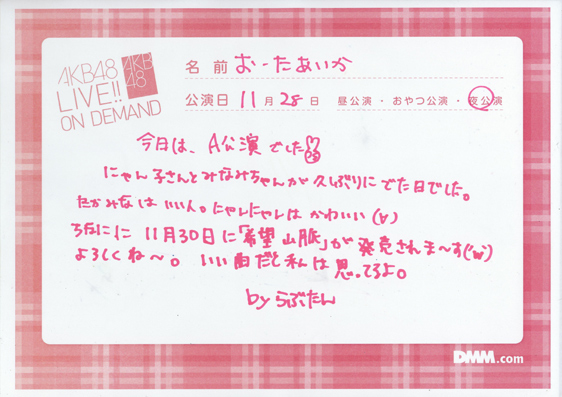 AKB48
LIVE!!
ON DEMAND
AKB
48
名 前 おーたあいか
公演日 11 月 28 日 昼公演・おやつ公演・夜公演
今日は、A公演でした
にゃん子さんとみなみちゃんが久しぶりにでた日でした。
たかみなは いい人。にゃんにゃんは かわいい
ちなみに 11月30日に「希望山脈」が発売されま〜す
よろしくね〜。 いい曲だと私は思ってるよ。
by らぶたん
DMM.com